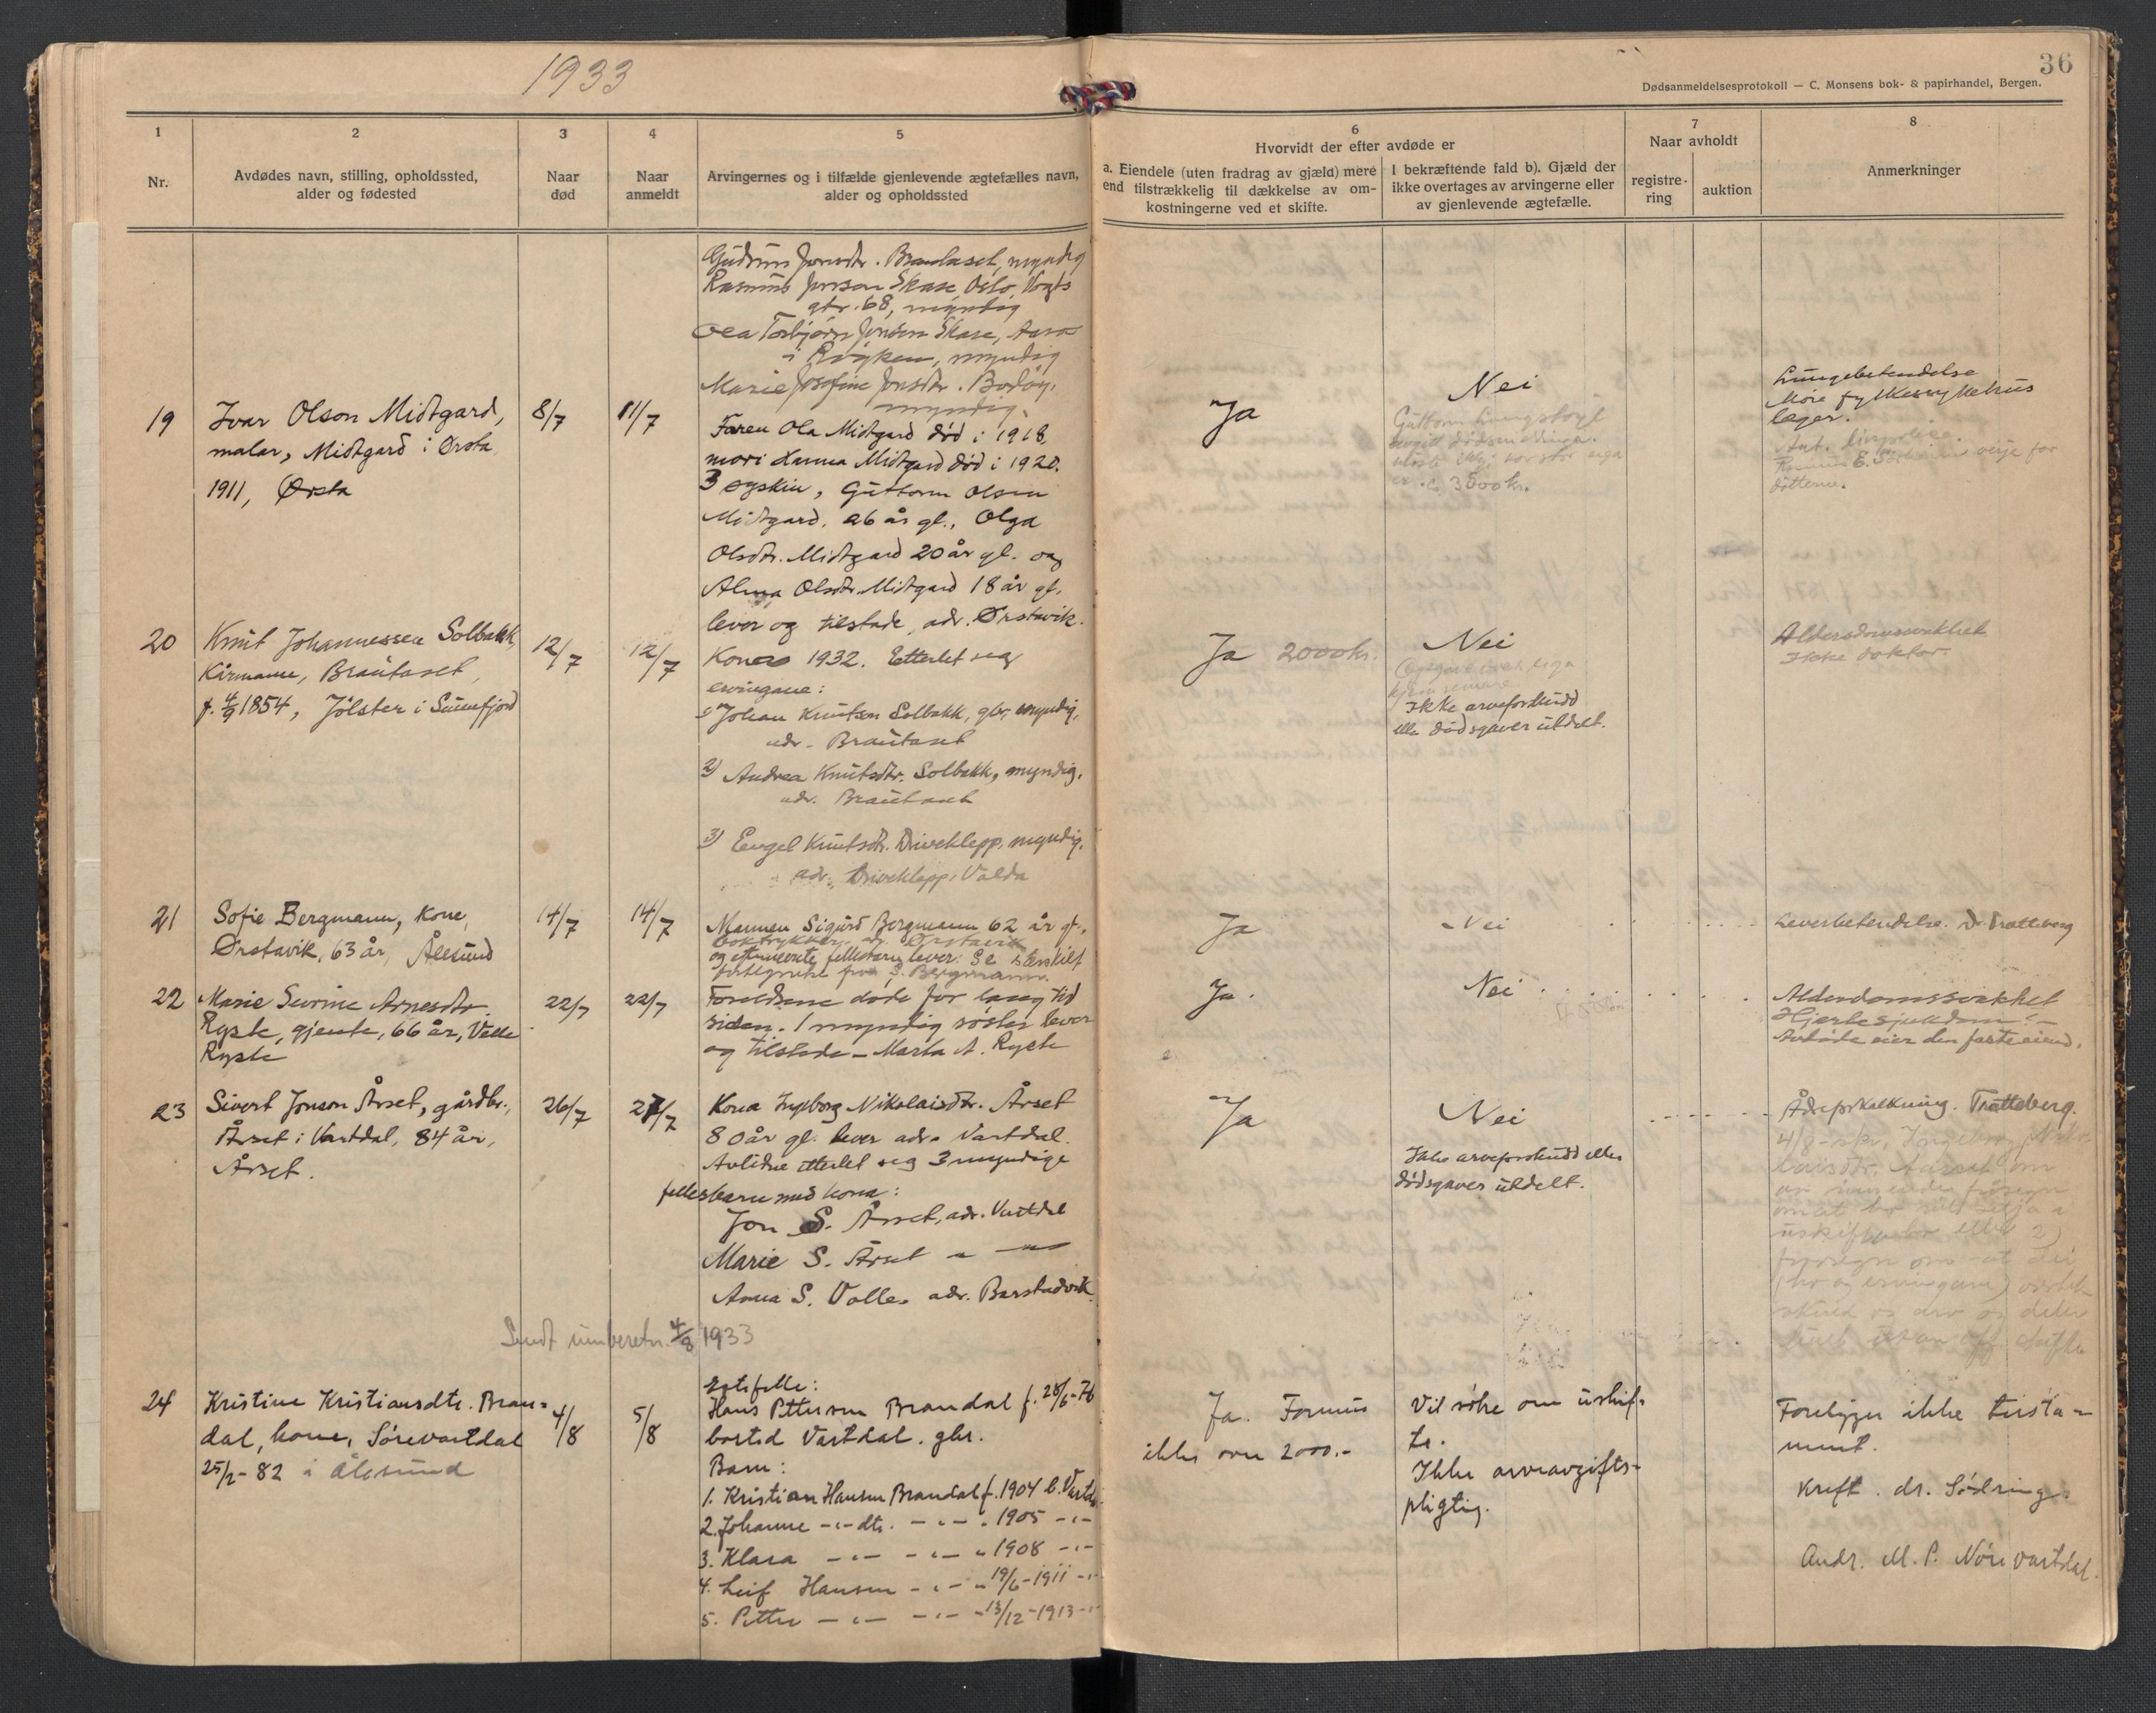 1933
36
Dødsanmeldelsesprotokoll — C. Monsens bok- & papirhandel, Bergen.
1
Nr.
2
Avdødes navn, stilling, opholdssted,
alder og fødested
3
Naar
død
4
Naar
anmeldt
5
Arvingernes og i tilfælde gjenlevende ægtefælles navn,
alder og opholdssted
6
Hvorvidt der efter avdøde er
a. Eiendele (uten fradrag av gjæld) mere
end tilstrækkelig til dækkelse av om-
kostningerne ved et skifte.
I bekræftende fald b). Gjæld der
ikke overtages av arvingerne eller
av gjenlevende ægtefælle.
7
Naar avholdt
registre-
ring
auktion
8
Anmerkninger
Gudrun Jonsdtr. Brautaset, myndig
Rasmus Jonson Skase, Oslo, Vogts
gtr. 68, myndig
Ola Torbjørn Jonsen Skase,
i Røyken, myndig
Marie Josefine Jonsdtr.
myndig.
19
Ivar Olson Midtgard,
malar, Midtgard i Ørsta
1911, Ørsta
8/7
11/7
Faren Ola Midtgard død i 1918,
mori Hanna Midtgard død i 1920.
3 syskin, Guttorm Olsen
Midtgard, 26 år gl., Olga
Olsdtr. Midtgard 20 år gl. og
Alma Olsdtr. Midtgard 18 år gl.
lever og tilstade, adr. Ørstavik.
Ja
Nei
Guttorm
3500 kr.
Lungebetendelse
Møre fylkessykehus
læger.
verje for
døttrene.
20
Knut Johannessen Solbakk,
Kårmann, Brautaset,
f. 4/9 1854, Jølster i Sunnfjord
12/7
12/7
Kona 1932. Etterlet seg
ervingane:
1) Johan Knutsen Solbakk, gbr, myndig,
adr. Brautaset
2) Andrea Knutsdtr. Solbakk, myndig,
adr. Brautaset
3) Engel Knutsdtr. Driveklepp, myndig,
adr. Driveklepp, Volda
Ja 2000 kr.
Nei
Ikke arveforskudd
eller dødsgaver utdelt.
Aldersdomssvakhet
Ikke doktor.
21
Sofie Bergmann, kone,
Ørstavik, 63 år, Ålesund
14/7
14/7
Mannen Sigurd Bergmann 62 år gl.,
boktrykker, Ørstavik
og etternemnte fellesbarn lever. Se særskilt
fortegnelse fra S. Bergmann.
Ja
Nei
Leverbetendelse. Dr. Tratteberg
22
Marie Sevrine Arnesdtr.
Ryste, gjente, 66 år, Velle
Ryste
22/7
22/7
Foreldrene døde for lang tid
siden. 1 myndig søster lever
og tilstede – Marta A. Ryste
Ja.
Nei
Alderdomssvakhet
Hjertesjukdom
Avdøde eier den faste eiend.
23
Sivert Jonson Årset, gårdbr.,
Årset i Vartdal, 84 år,
Årset.
26/7
27/7
Kona Ingeborg Nikolaisdtr. Årset
80 år gl. lever adr. Vartdal.
Avlidne etterlet seg 3 myndige
fellesbarn med kona:
Jon S. Årset, adr. Vartdal
Marie S. Årset " — "
Anna S. Volle, adr. Barstadvik
Ja
Nei
Ikke arveforskudd eller
dødsgaver utdelt.
Åreforkalkning. Tratteberg.
4/8 - skr. Ingeborg Niko-
laisdtr. Aarset om
Sendt innberetn. 4/8 1933
24
Kristine Kristiansdtr. Bran-
dal, kone, Sørevartdal
25/2-82 i Ålesund
4/8
5/8
Ektefelle:
Hans Pettersen Brandal f. 28/6-76
bosted Vartdal. gbr.
Barn:
1. Kristian Hansen Brandal f. 1904 b. Vartd.
2. Johanne -"- dtr. -"- " 1905 -"-
3. Klara -"- -"- " 1908 -"-
4. Leif Hansen -"- " 19/6-1911 -"-
5. Petter -"- -"- - 13/12-1913 -"-
Ja. Formue
ikke over 2000.-
Vil søke om uskif-
te.
Ikke arveavgifts-
pligtig.
Foreligger ikke testa-
ment.
Kreft. dr. Sødring.
Andr. M. P. Nørevartdal.